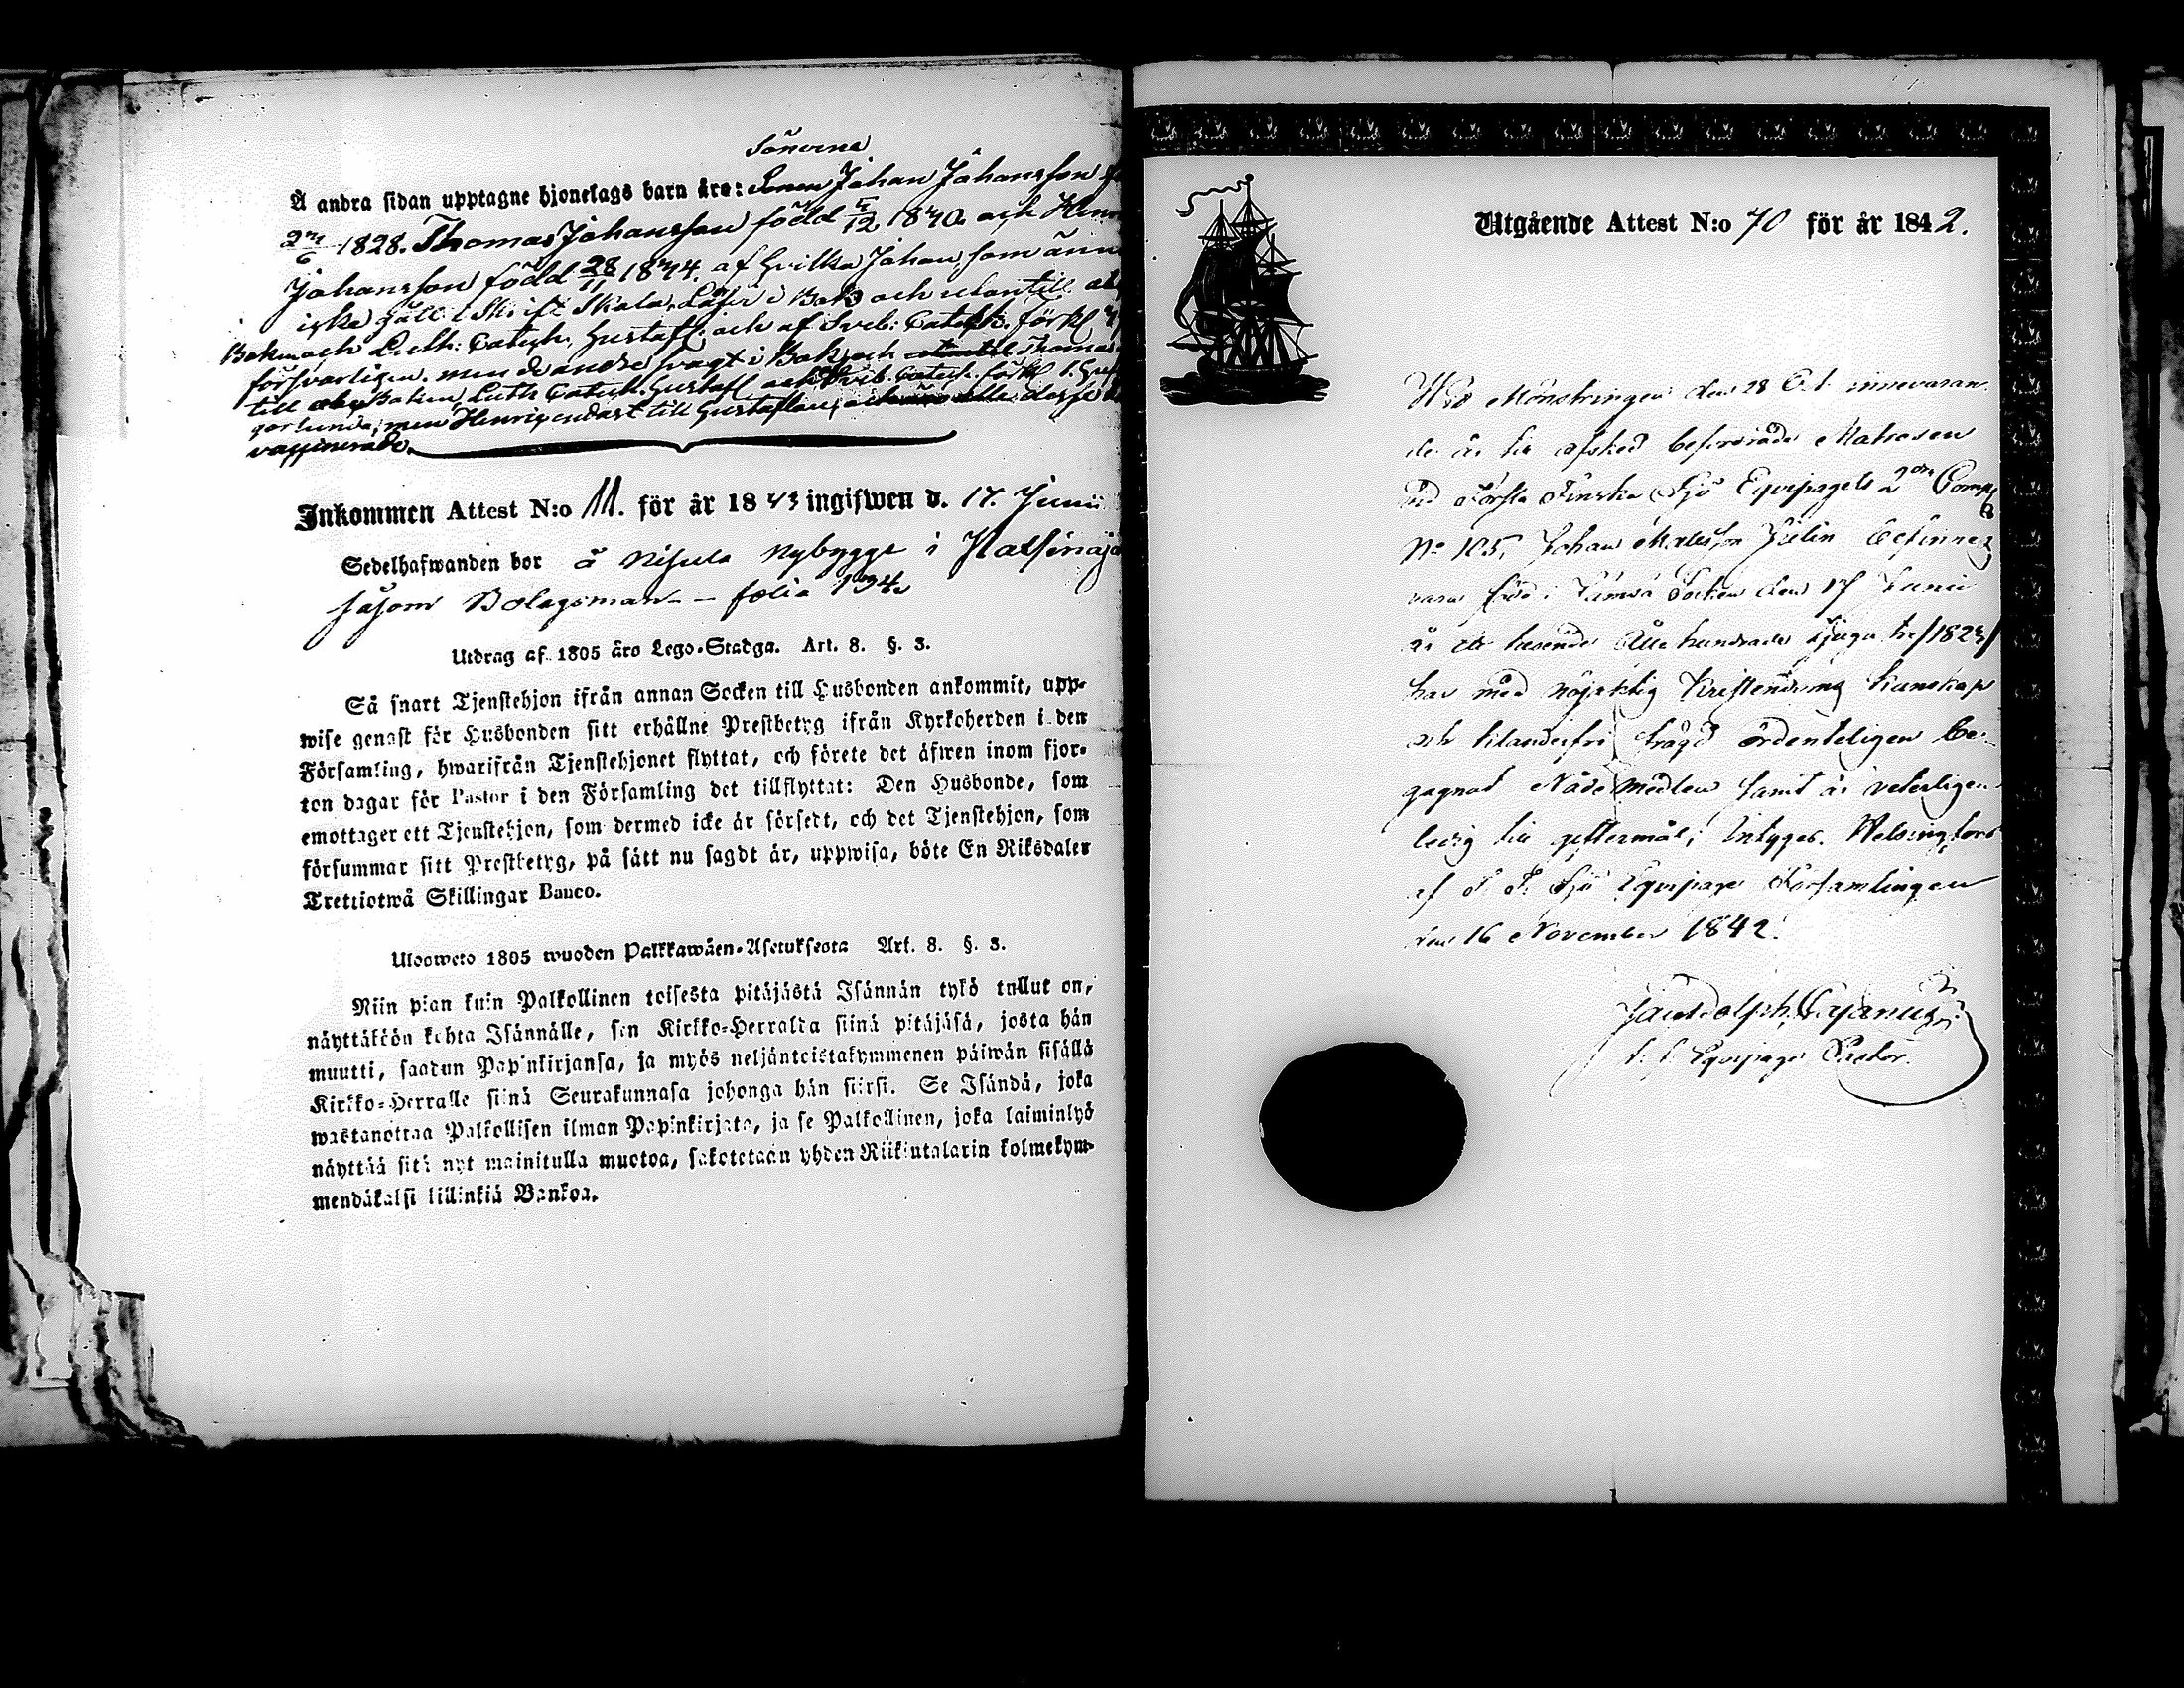 Sönerna
Å andra sidan upptagne hjonelags barn äro: Johan Johansson
1828. Thomas Johansson född 5/12 1830 och
Johansson född 28/11 1834. af hvilka Johan, som ännu
icke gått i Skrift Skola, Läser i Bok och utantill
Boken och Luth: Catech. Gustafl: och af Sveb: Catech. förkl
försvarligen. men de andre svagt i Bok och Thomas
till Boken, Luth Catech. Gustafl och Sveb. Catech. förkl
men Henric endast till Gustaflan,
vaccinerade.
Inkommen Attest N:o 11. för år 1843 ingifwen d. 17. Junii
Sedelhafwanden bor å Nisula Nybygge i
såsom Bolagsman – folio 134
Utdrag af 1805 års Lego-Stadga. Art. 8. §. 3.
Så snart Tjenstehjon ifrån annan Socken till Husbonden ankommit, upp-
wise genast för Husbonden sitt erhållne Prestbetyg ifrån Kyrkoherden i den
Församling, hwarifrån Tjenstehjonet flyttat, och förete det äfwen inom fjor-
ton dagar för Pastor i den Församling det tillflyttat: Den Husbonde, som
emottager ett Tjenstehjon, som dermed icke är försedt, och det Tjenstehjon, som
försummar sitt Prestbetyg, på sätt nu sagdt är, uppwisa, böte En Riksdaler
Trettiotwå Skillingar Banco.
Ulosweto 1805 wuoden Palkkawäen-Asetuksesta Art. 8. §. 3.
Niin pian kuin Palkollinen toisesta pitäjästä Isännän tykö tullut on,
näyttäköön kohta Isännälle, sen Kirkko-Herralta siinä pitäjäsä, josta hän
muutti, saadun Papinkirjansa, ja myös neljäntoistakymmenen päiwän sisällä
Kirkko-Herralle siinä Seurakunnasa johonga hän siirsi. Se Isändä, joka
wastanottaa Palkollisen ilman Papinkirjata, ja se Palkollinen, joka laiminlyö
näyttää sitä nyt mainitulla muotoa, sakotetaan yhden Riikintalarin kolmekym-
mendäkaksi killinkiä Bankoa.
Utgående Attest N:o 70 för år 1842.
Wid Mönstringen den 28 Oct. innevaran
de år till afsked befordrade Matrosen
vid Första Finska Sjö Equipagets 2dra Comp
No 105, Johan Mattsson Julin
född i Jämsä Socken den 17 Junii
år ett tusende Åtta hundrade tjugu tre /1823/
har med nöjaktig Kristendoms kunskap
och klanderfri frägd ordenteligen be-
gagnat Nådemedlen samt är veterligen
ledig till giftermål; Intygas. Helsingfors
af F. F. Sjö Equipage Församlingen
den 16 November 1842.
Cajanus
F. F. Equipage Pastor.